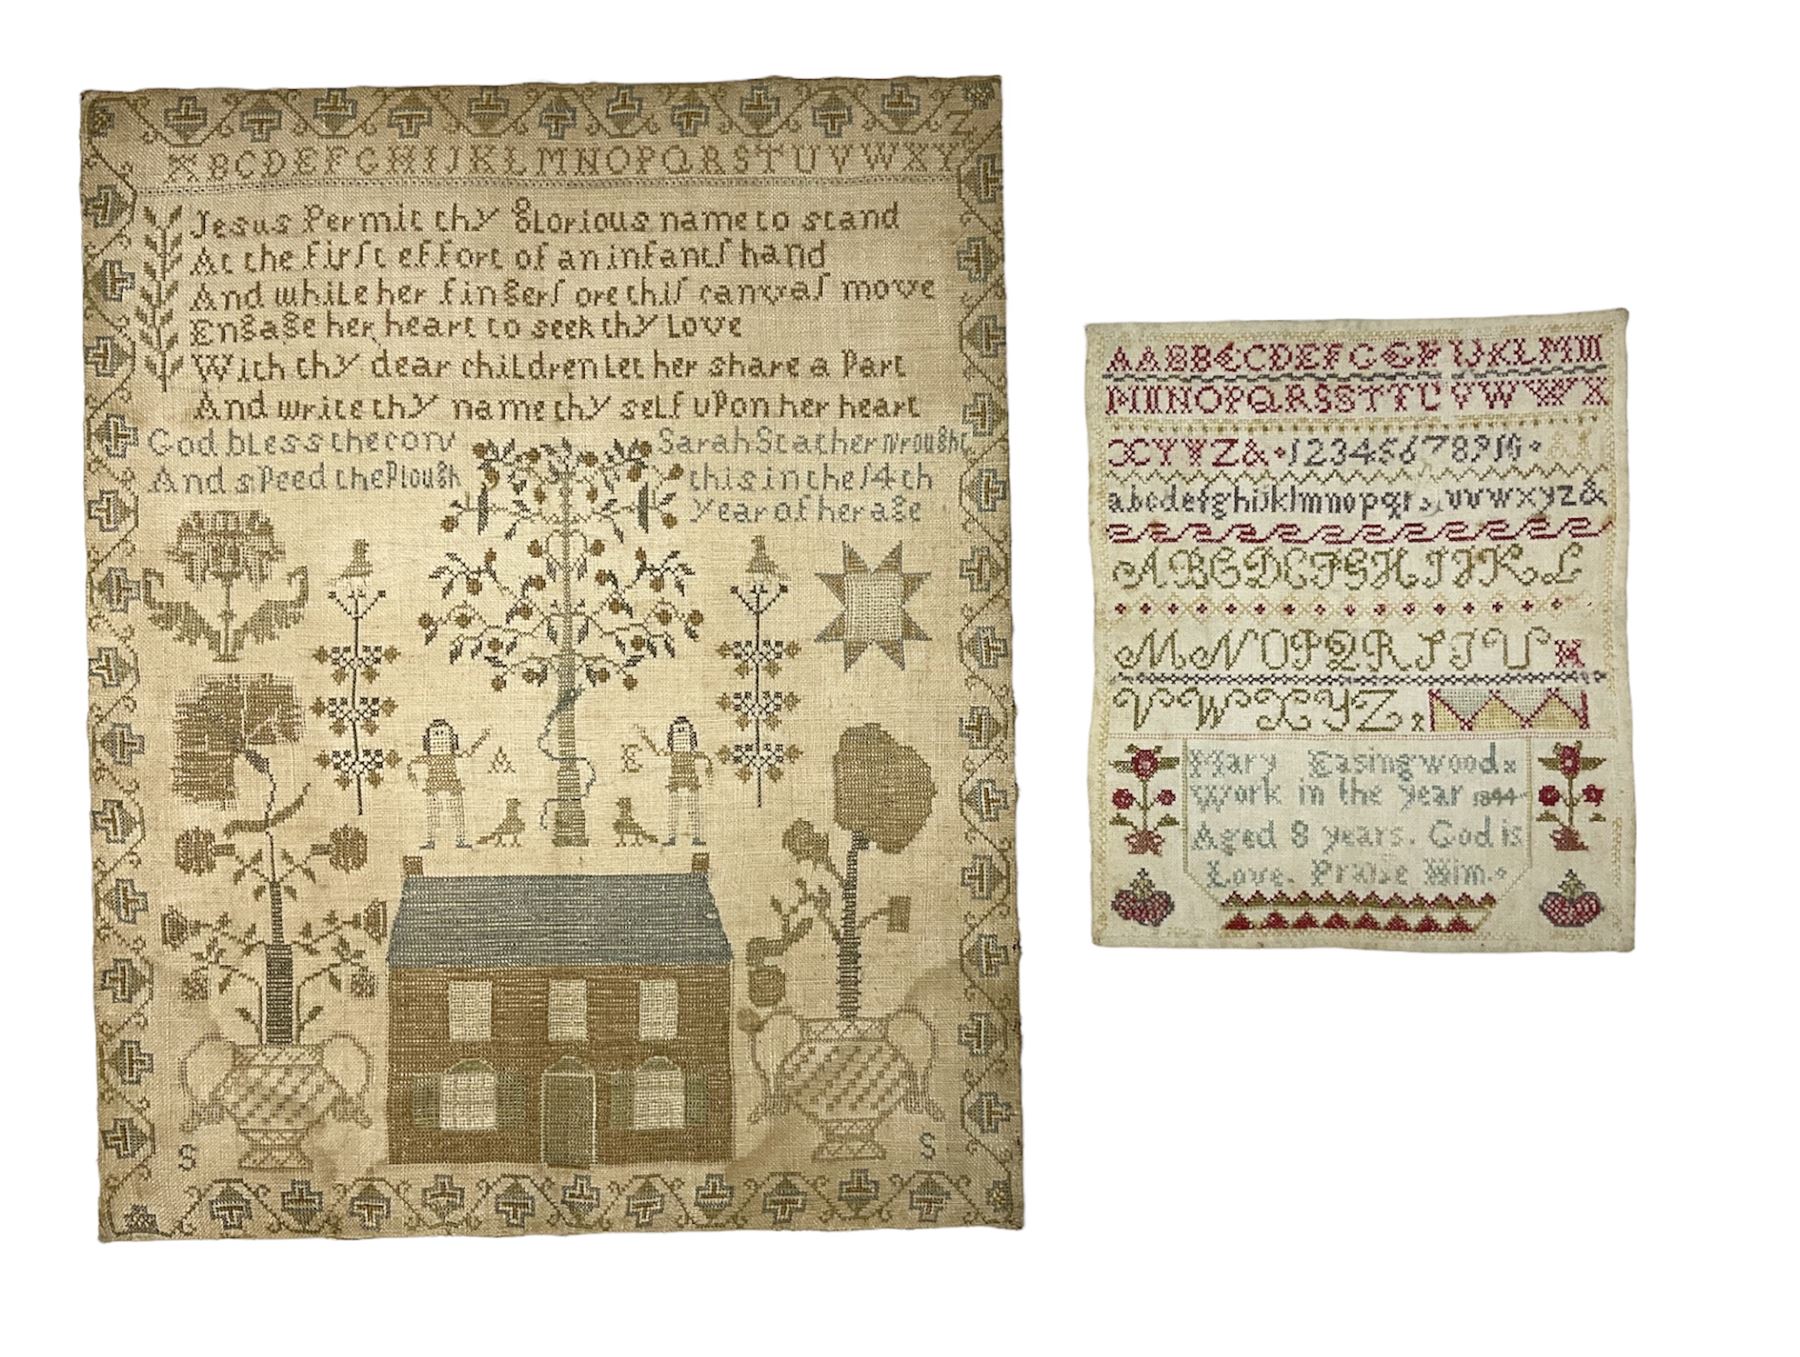 Z
ABCDEFGHIJKLMNOPQRSTUVWXY
Jesus Permit thy Glorious name to stand
At the first effort of an infants hand
And while her fingers ore this canvas move
Engage her heart to seek thy Love
With thy dear children Let her share a Part
And write thy name thy self upon her heart
God bless the corn
And speed the Plough
Sarah Stather Wrought
this in the 14th
Year of her age
A E
S S
AABBCCDEFGGF IJKLMM
MNNOPQRSSTTU VWWX
XYYZ& 12345678910
abcdefghijklmnopqrs uvwxyz&
ABCDEFGHIJKL
MNOPQRSTU
VWXYZ&
Mary Easingwood
Work in the year 1844
Aged 8 years. God is
Love. Praise Him.